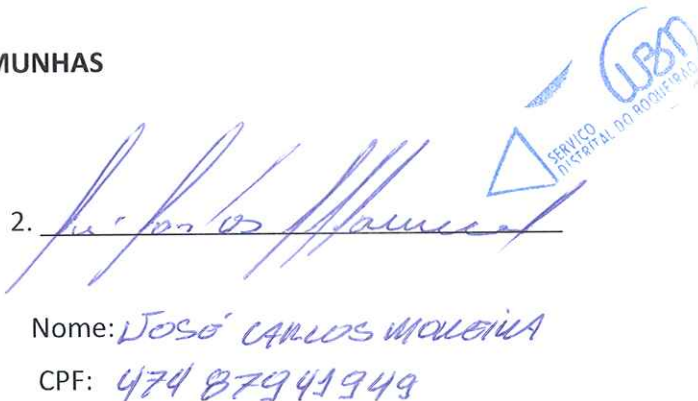 MUNHAS
SERVIÇO
DISTRITAL DO BOQUEIRÃO
2. José Carlos Moreira
Nome: JOSÉ CARLOS MOREIRA
CPF: 474 87941949